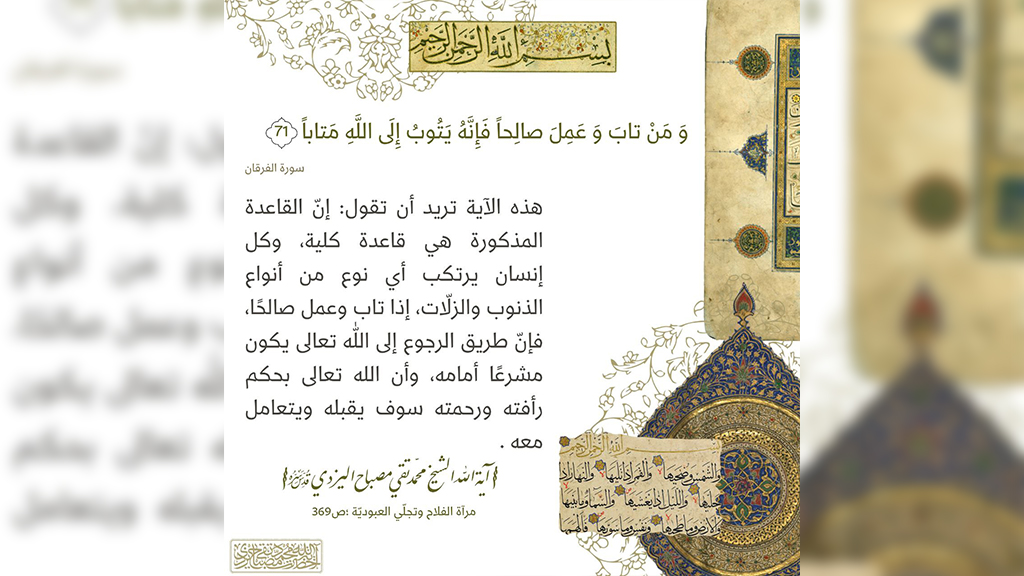 بسم الله الرحمن الرحيم
وَ مَنْ تابَ وَ عَمِلَ صالِحاً فَإِنَّهُ يَتُوبُ إِلَى اللَّهِ مَتاباً 71
سورة الفرقان
هذه الآية تريد أن تقول: إنّ القاعدة
المذكورة هي قاعدة كلية، وكل
إنسان يرتكب أي نوع من أنواع
الذنوب والزلّات، إذا تاب وعمل صالحًا،
فإنّ طريق الرجوع إلى الله تعالى يكون
مشرعًا أمامه، وأن الله تعالى بحكم
رأفته ورحمته سوف يقبله ويتعامل
معه .
آية الله الشيخ محمد تقي مصباح اليزدي
مرآة الفلاح وتجلّي العبوديّة :ص369
بسم الله الرحمن الرحيم
والشمس وضحيها والقمر اذا تليها والنهار اذا
جليها والليل اذا يغشيها والسماء وما بنيها
والارض وما طحيها ونفس وما سويها فالهمها